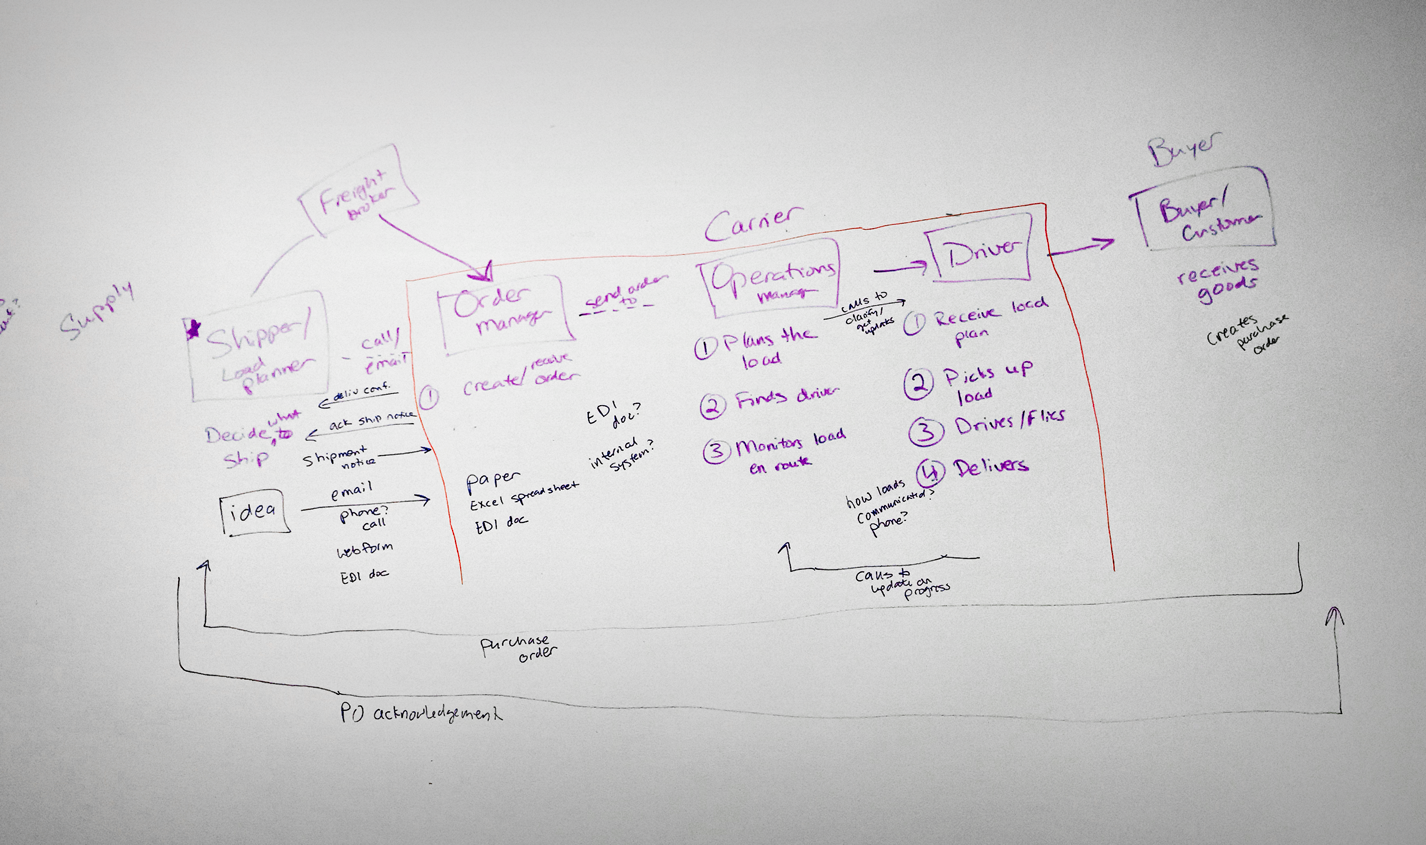 Supply
Freight
broker
Shipper/
Load
planner
call/
email
deliv conf.
ack ship notice
Shipment
notice
Decide what to
ship
idea
email
phone?
call
webform
EDI doc
Carrier
Order
manager
send order
to
① create/receive
order
EDI
doc?
internal
system?
paper
Excel spreadsheet
EDI doc
Operations
manager
① Plans the
load
② Finds driver
③ Monitors load
en route
calls to
clarify/
get
updates
Driver
① Receive load
plan
② Picks up
load
③ Drives/Flies
④ Delivers
how loads
communicated?
phone?
calls to
update on
progress
Buyer
Buyer/
Customer
receives
goods
creates
purchase
order
purchase
order
PO acknowledgement